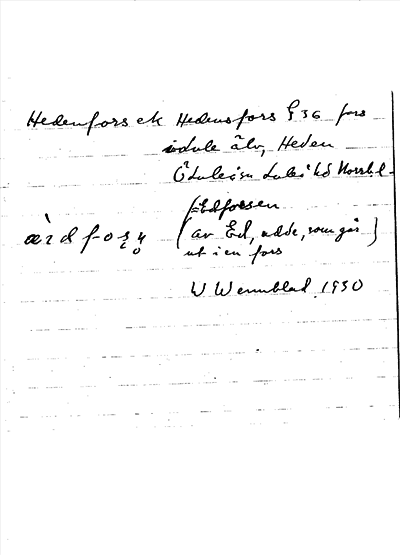 Hedenfors ek Hedensfors § 36 fors
i Lule älv, Heden
Ö Luleå sn Luleå hd Norrb l
(=Edforsen
(av Ed, udde, som går)
ut i en fors
W Wennblad 1930